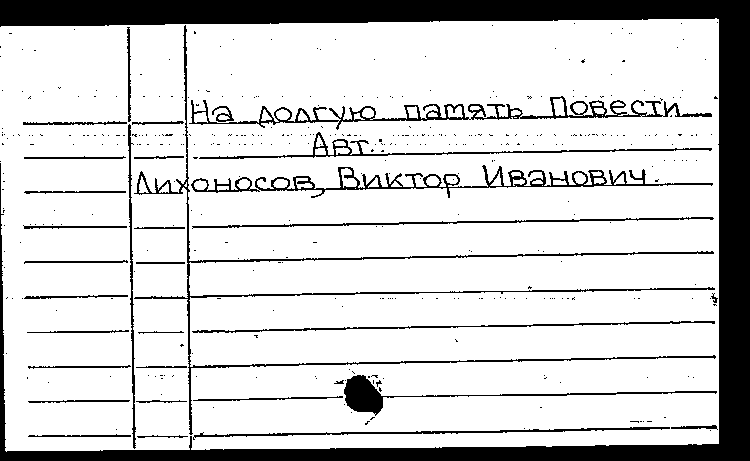 На долгую память Повести
Авт.:
Лихоносов, Виктор Иванович.